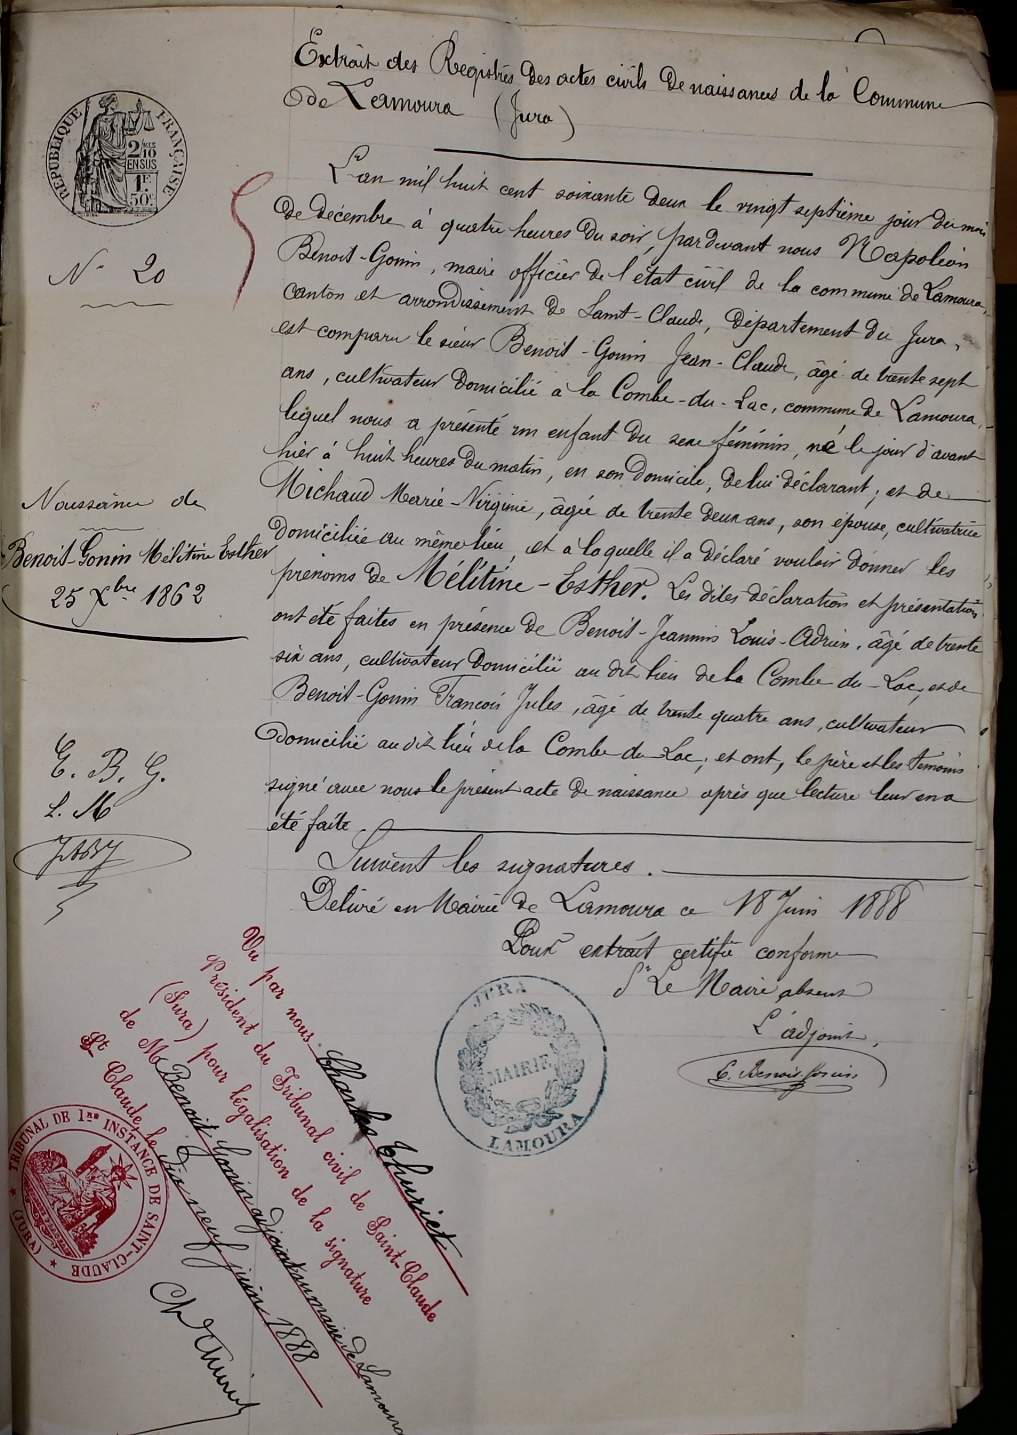 Extrait des Registres des actes civils de naissances de la Commune
de Lamoura (Jura)
RÉPUBLIQUE FRANÇAISE
2/10 EN SUS
1F 50c
N° 20
L'an mil huit cent soixante deux le vingt septième jour du mois
de décembre à quatre heures du soir, pardevant nous Napoléon
Benoit-Gonin, maire officier de l'état civil de la commune de Lamoura,
canton et arrondissement de Saint-Claude, département du Jura,
est comparu le sieur Benoit-Gonin Jean-Claude, âgé de trente sept
ans, cultivateur domicilié à la Combe-du-Lac, commune de Lamoura,
lequel nous a présenté un enfant du sexe féminin, né le jour d'avant
hier à huit heures du matin, en son domicile, de lui déclarant, et de
Michaud Marie-Virginie, âgée de trente deux ans, son épouse, cultivatrice
domiciliée au même lieu, et à laquelle il a déclaré vouloir donner les
prénoms de Mélitine-Esther. Les dites déclaration et présentation
ont été faites en présence de Benoit-Jeannin Louis-Adrien, âgé de trente
six ans, cultivateur domicilié au dit lieu de la Combe du-Lac, et de
Benoit-Gonin François Jules, âgé de trente quatre ans, cultivateur
domicilié au dit lieu de la Combe du-Lac; et ont, le père et les témoins
signé avec nous le présent acte de naissance après que lecture leur en a
été faite.
Suivent les signatures.
Délivré en Mairie de Lamoura ce 18 Juin 1888
Pour extrait certifié conforme
Pr Le Maire absent
L'adjoint,
C. Benoit-Gonin
Naissance de
Benoit-Gonin Mélitine Esther
25 Xbre 1862
E. B. G.
L. M
JURA
MAIRIE
LAMOURA
Vu par nous Charles Thuriet
Président du Tribunal civil de Saint-Claude
(Jura) pour légalisation de la signature
de M Benoit Gonin adjoint au maire de Lamoura
St Claude, le dix neuf juin 1888
Ch Thuriet
TRIBUNAL DE 1RE INSTANCE DE SAINT-CLAUDE
(JURA)